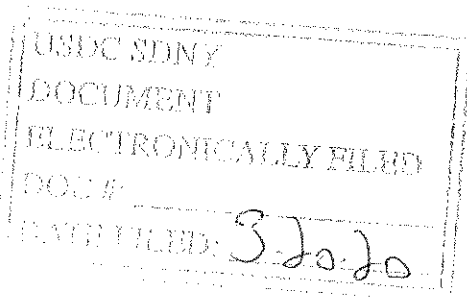 USDC SDNY
DOCUMENT
ELECTRONICALLY FILED
DOC #:
DATE FILED: 3-20-20